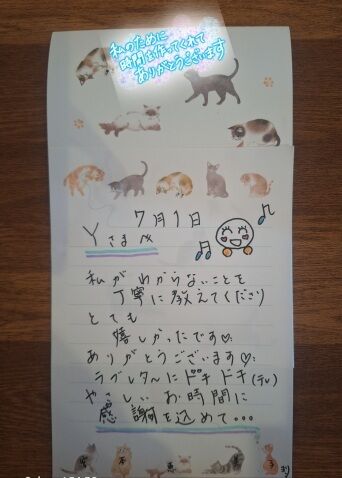 私のために
時間を作ってくれて
ありがとうございます
7月1日
Yさまへ
私がわからないことを
丁寧に教えてくださり
とても
嬉しかったです♡
ありがとうございます♡
ラブレターにドキドキ(テレ)
やさしいお時間に
感謝を込めて…
恵
子
より